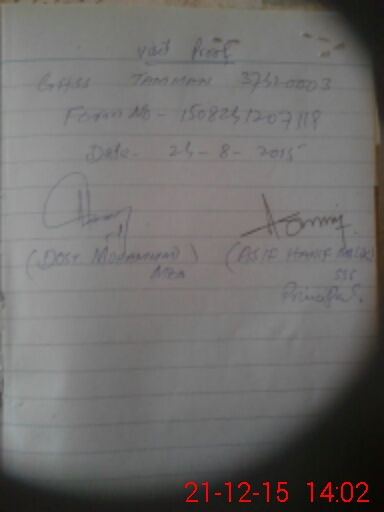 visit Proof
GHSS TAMMAN 37320003
Form No - 1508241207119
Date - 24 - 8 - 2015
(DOST MOHAMMAD) (ASIF HANIF MALIK)
MEA SSS
Principal.
21-12-15 14:02